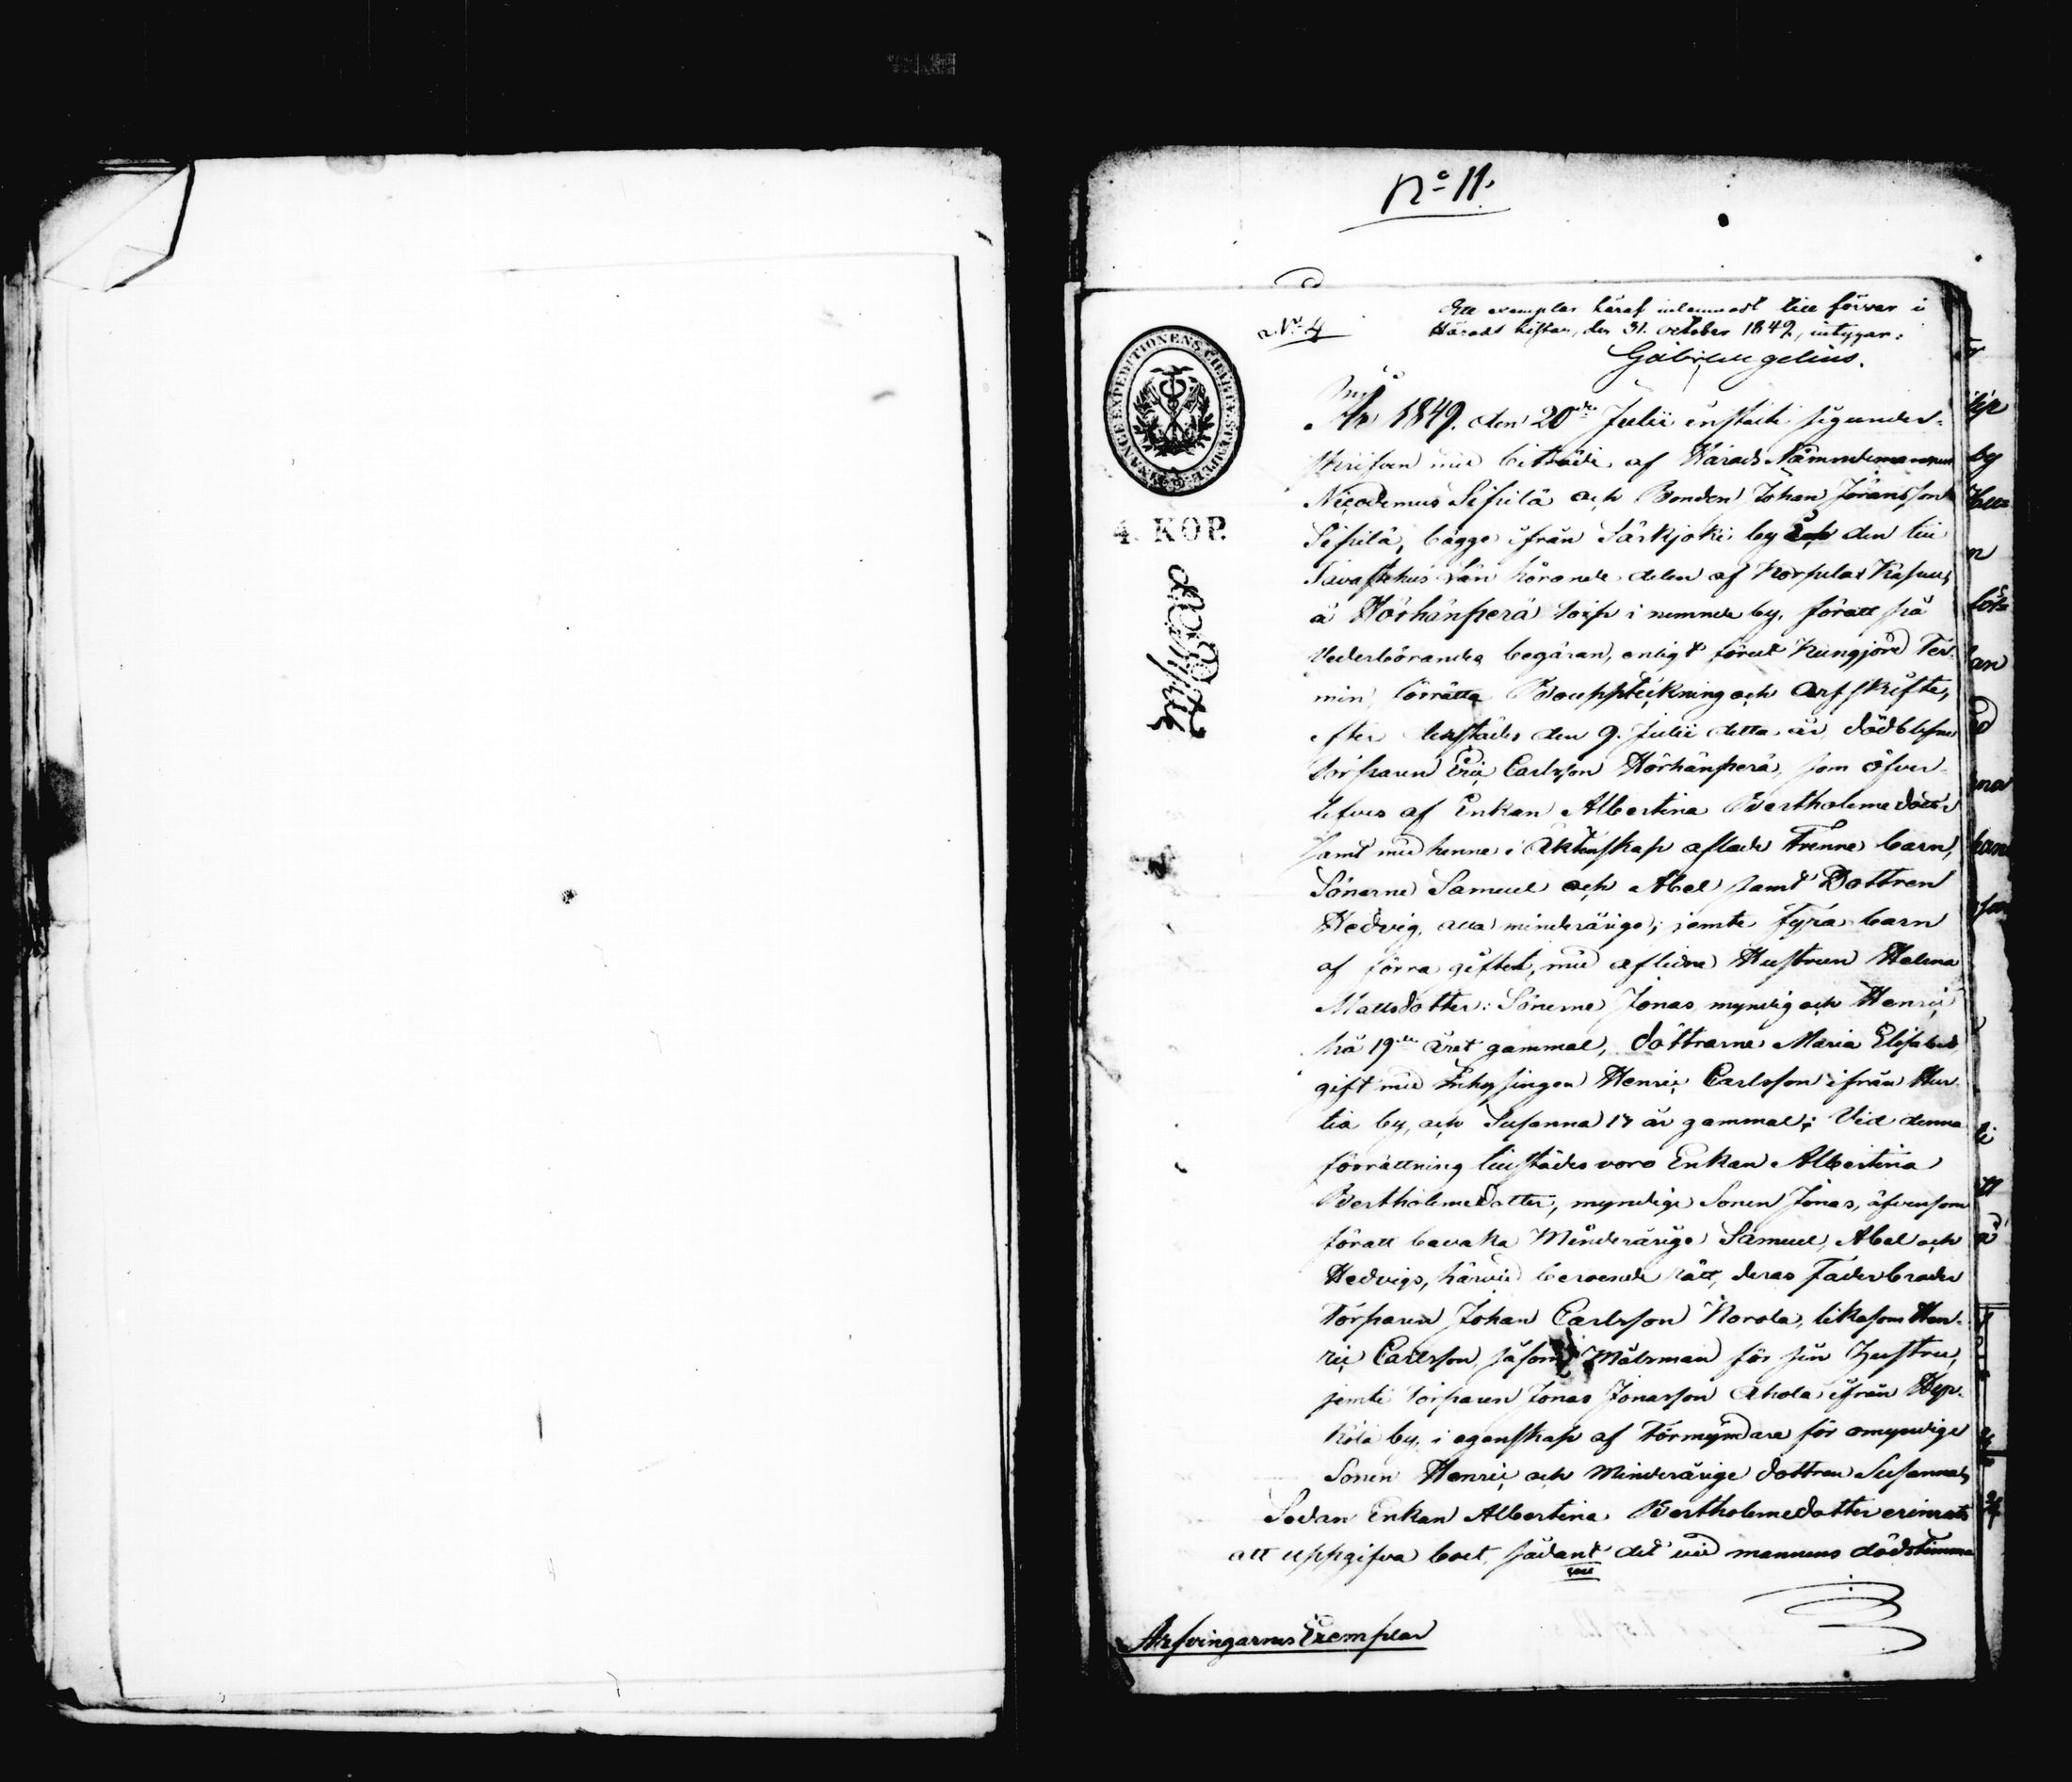 No 11.
No 4
Ett exemplar häraf inlemnadt till förvar i
Härads kistan, den 31. october 1849, intygar:
FINANCE EXPEDITIONENS CHARTÆ STEMPEL
4. KOP.
År 1849. den 20de Julii instälte sig under-
skrifven med biträde af Härads Nämndemannen
Nicodemus Sipilä och Bonden Johan Jöransson
Sipilä, bägge ifrån Särkjoki by den till
Tavastehus Län hörande delen af Korpilax
å Hörhänperä torp i nemnde by, föratt på
Vederbörandes begäran, enligt förut kungjord Ter-
min, förrätta Bouppteckning och Arfskifte,
efter härstädes den 9. Julii detta år dödblefne
torparen Eric Carlsson Hörhänperä, som öfver-
lefves af Enkan Albertina Bertholomedotter
samt med henne i Äktenskap aflade Trenne barn,
Sönerne Samuel och Abel samt Dottren
Hedvig, alla minderårige; jemte fyra barn
af förra giftet, med aflidna Hustrun Helena
Mattsdotter: Sönerne Jonas myndig och Henric
på 19de året gammal, döttrarne Maria Elisabet
gift med Inhysingen Henric Carlsson ifrån Hur-
tia by, och Susanna 17 år gammal; Vid denna
förrättning tillstädes voro Enkan Albertina
Bertholomedotter, myndige Sonen Jonas, äfvensom
föratt bevaka Minderårige Samuel, Abel och
Hedvigs, härvid beroende rätt, deras Faderbroder
Torparen Johan Carlsson Korola, likasom Hen-
ric Carlsson, såsom Målsman för sin Hustru,
jemte torparen Jonas Jonasson Ahola ifrån
by, i egenskap af Förmyndare för omyndige
Sonen Henric och Minderårige dottren Susanna,
Sedan Enkan Albertina Bertholomedotter erinrats
att uppgifva boet, sådant det vid mannens dödstimma
Arfvingarnes Exemplar